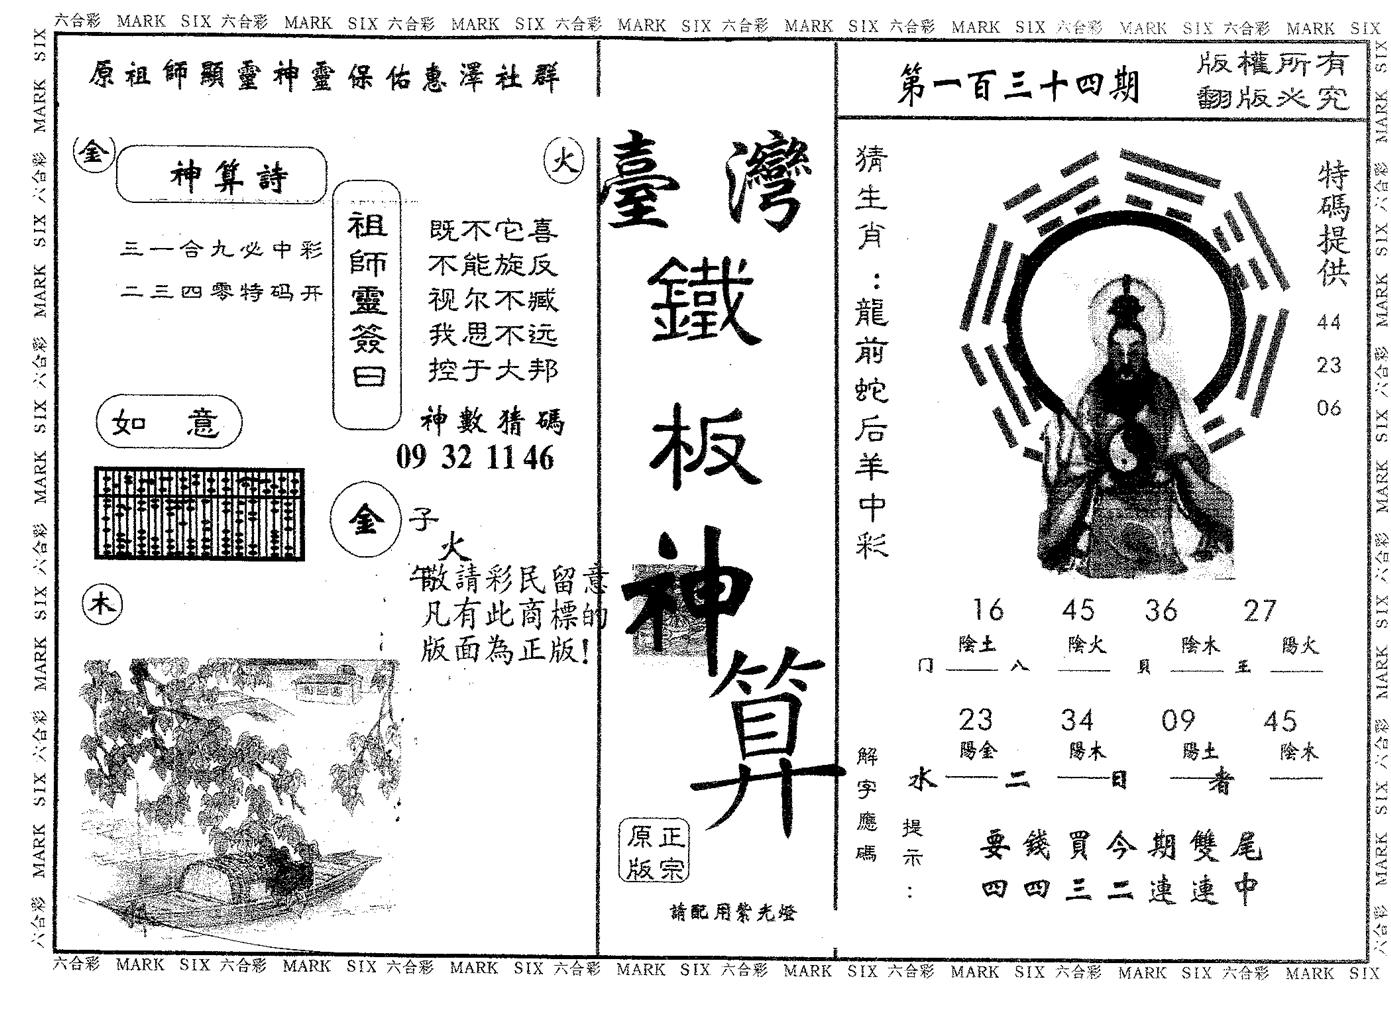 六合彩 MARK SIX 六合彩 MARK SIX 六合彩 MARK SIX 六合彩 MARK SIX 六合彩 MARK SIX 六合彩 MARK SIX 六合彩 MARK SIX 六合彩 MARK SIX
原祖師顯靈神靈保佑惠澤社群
金
神算詩
火
三一合九必中彩
二三四零特码开
祖師靈簽曰
既不它喜
不能旋反
视尔不臧
我思不远
控于大邦
神數猜碼
09 32 11 46
如意
金
子
火
午
敬請彩民留意
凡有此商標的
版面為正版!
木
臺灣
鐵
板
神
算
正宗
原版
請配用紫光燈
第一百三十四期
版權所有
翻版必究
猜生肖:龍前蛇后羊中彩
特碼提供
44
23
06
16 45 36 27
陰土 陰火 陰木 陽火
门 八 貝 王
23 34 09 45
陽金 陽木 陽土 陰木
水 二 日 者
解字應碼
提示:
要錢買今期雙尾
四四三二連連中
六合彩 MARK SIX 六合彩 MARK SIX 六合彩 MARK SIX 六合彩 MARK SIX 六合彩 MARK SIX 六合彩 MARK SIX 六合彩 MARK SIX 六合彩 MARK SIX
六合彩 MARK SIX 六合彩 MARK SIX 六合彩 MARK SIX 六合彩 MARK SIX 六合彩 MARK SIX
六合彩 MARK SIX 六合彩 MARK SIX 六合彩 MARK SIX 六合彩 MARK SIX 六合彩 MARK SIX